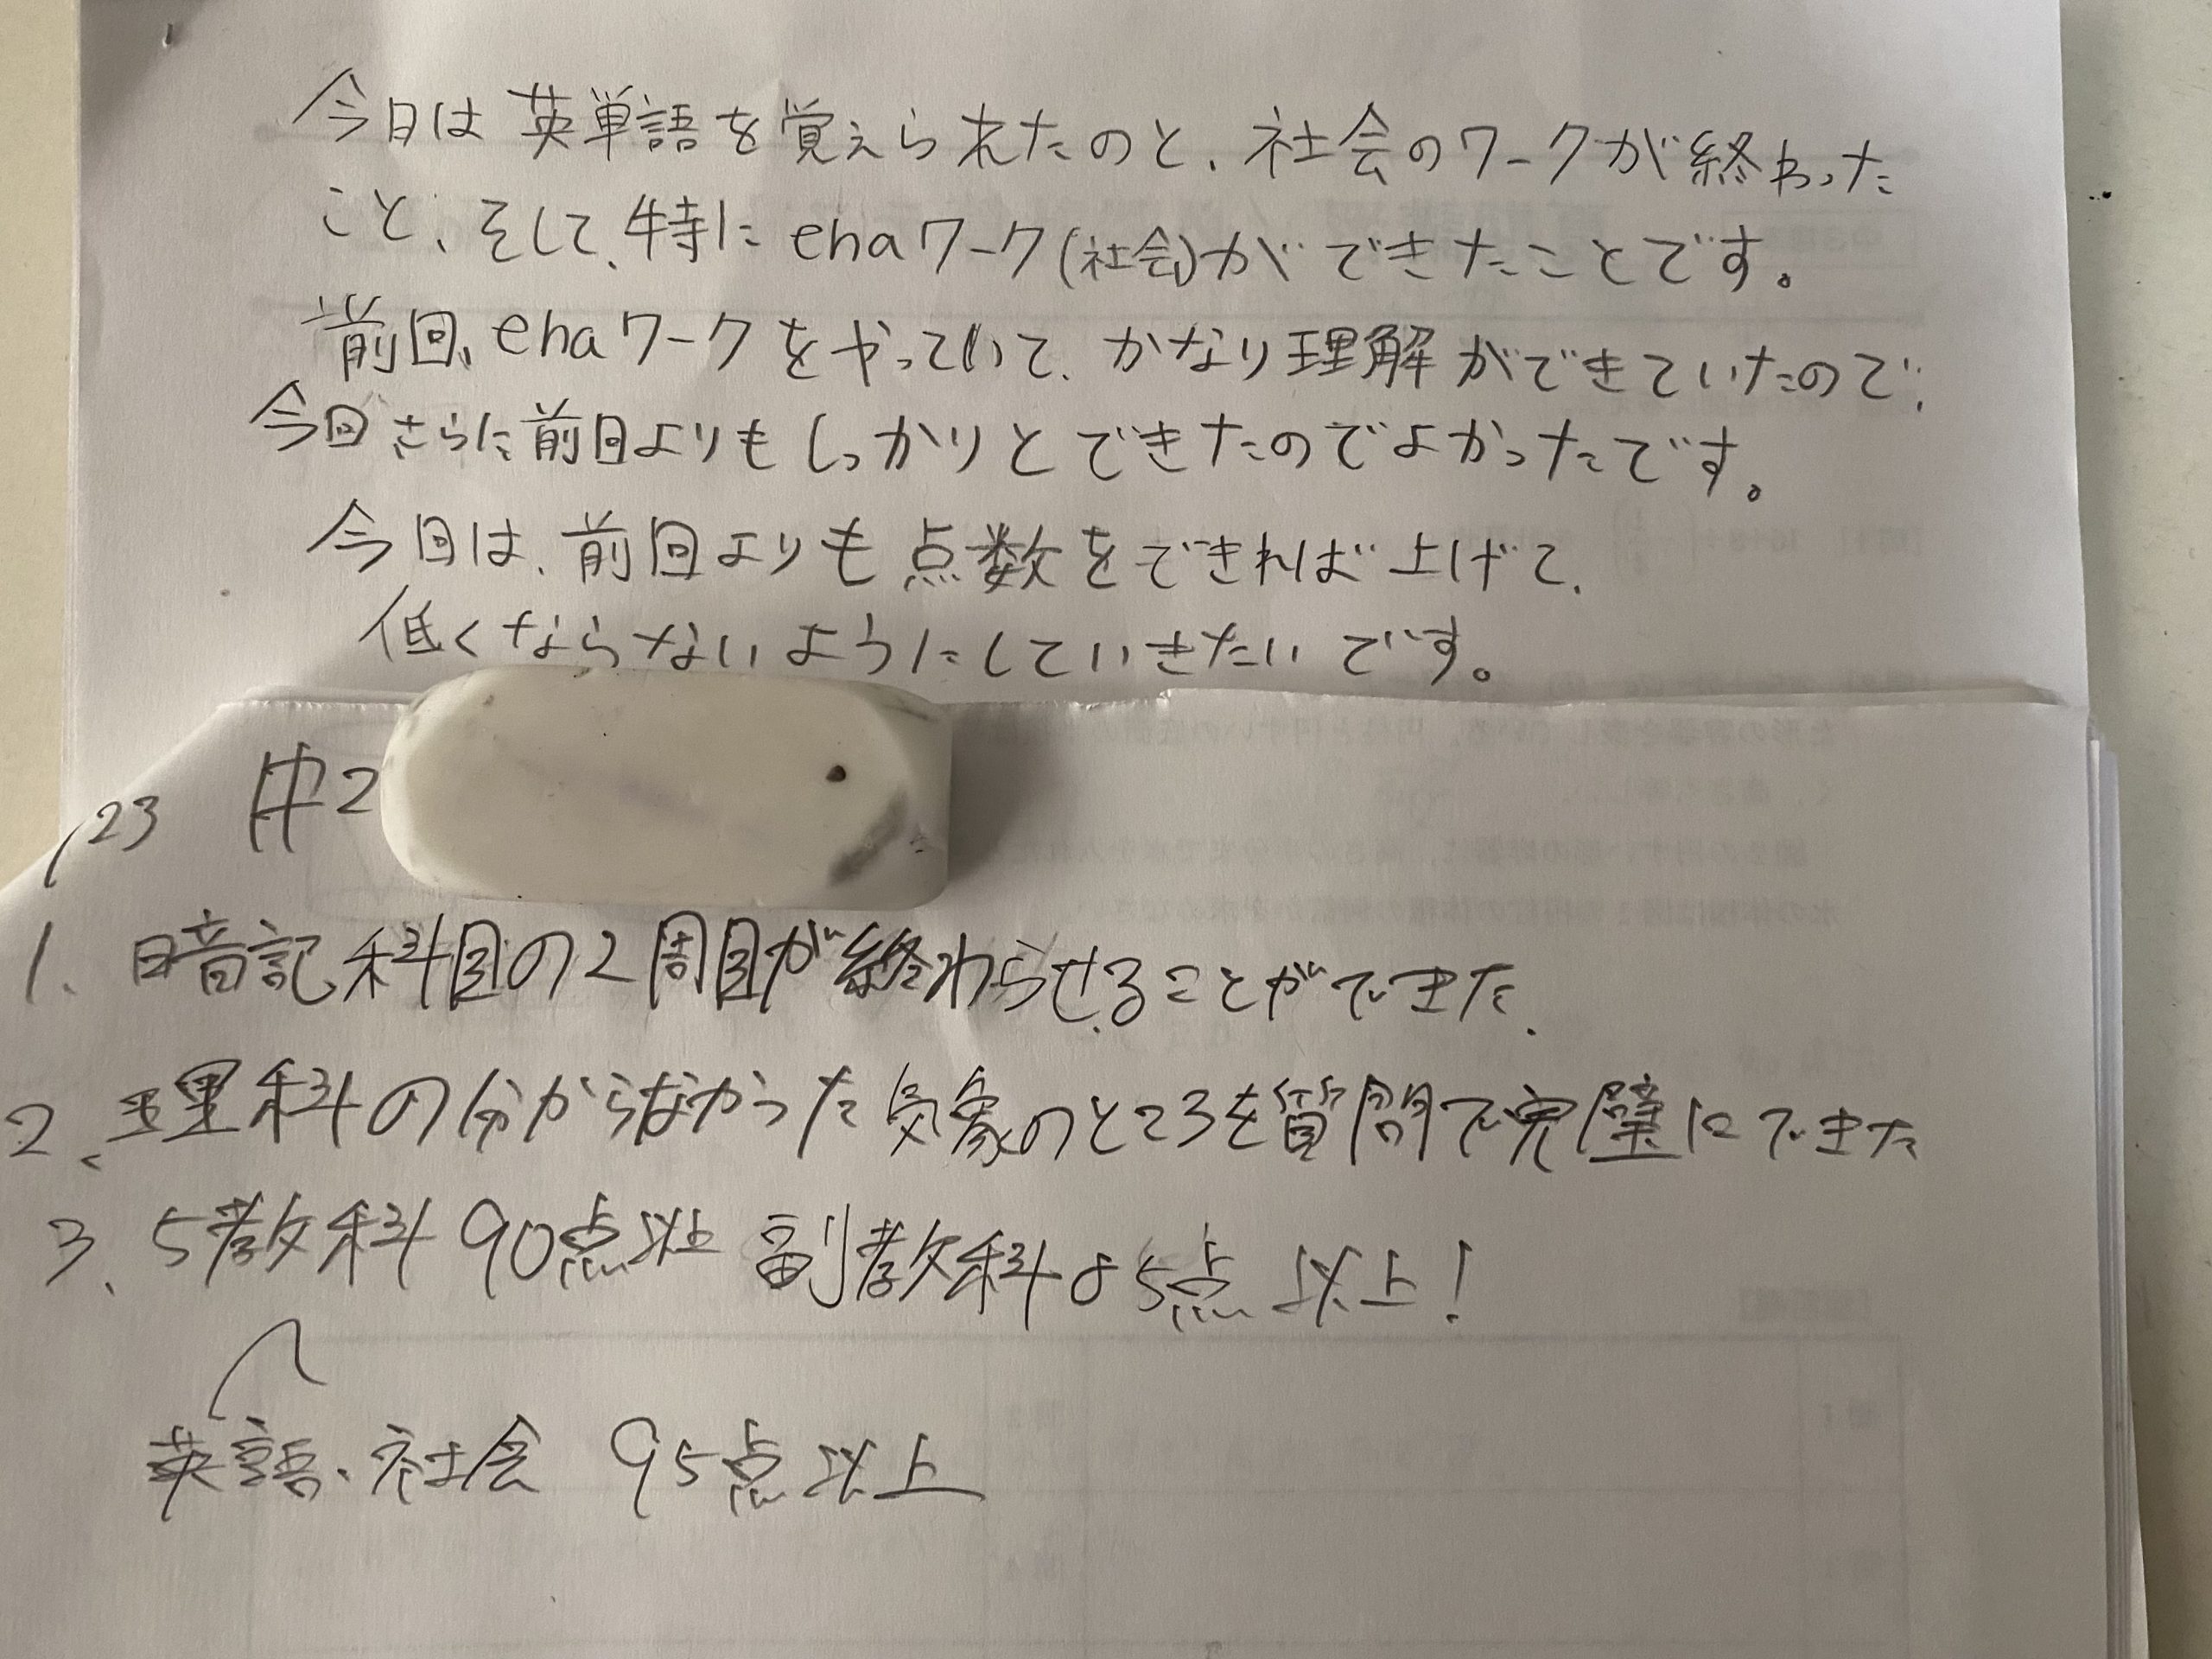 今日は英単語を覚えられたのと、社会のワークが終わった
こと、そして、特にenaワーク(社会)ができたことです。
前回、enaワークをやっていて、かなり理解ができていたので、
今回さらに前回よりもしっかりとできたのでよかったです。
今回は、前回よりも点数をできれば上げて、
低くならないようにしていきたいです。
/23 中2
1. 暗記科目の2周目が終わらせることができた.
2、理科の分からなかった気象のところを質問で完璧にできた
3、5教科90点以上 副教科85点以上!
英語・社会 95点以上